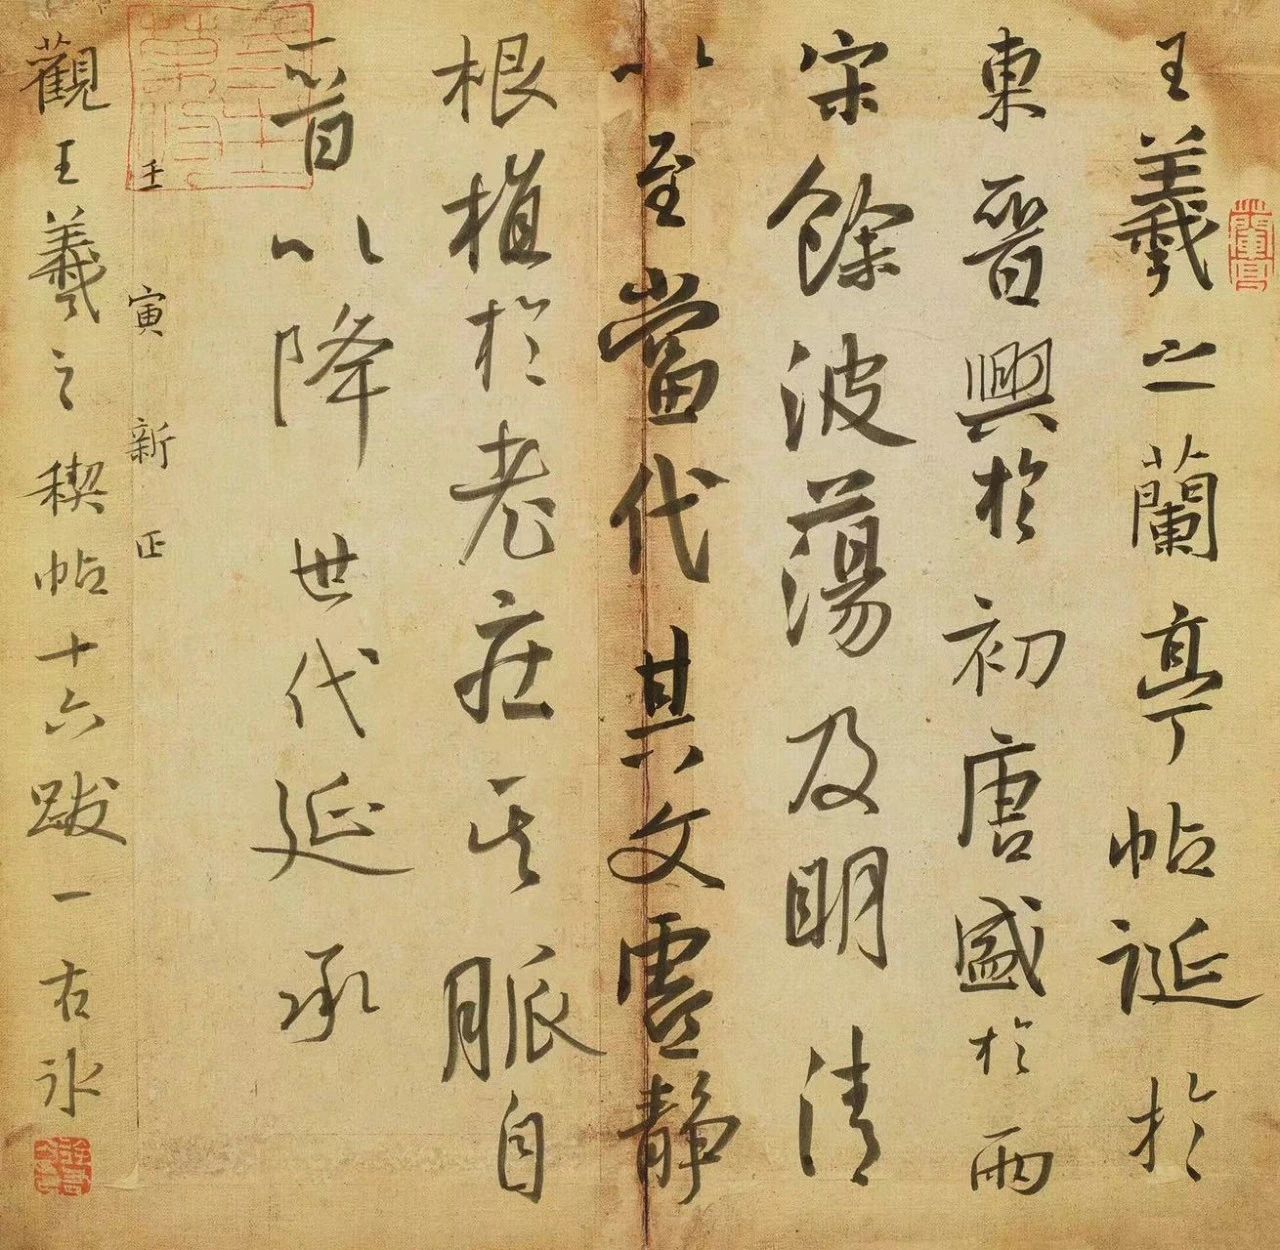 王羲之蘭亭帖誕於
東晉興於初唐盛於兩
宋餘波蕩及明清
以至當代其文虛静
根植於老莊其脈自
晉以降世代延承
壬寅新正
觀王羲之稧帖十六跋一古冰